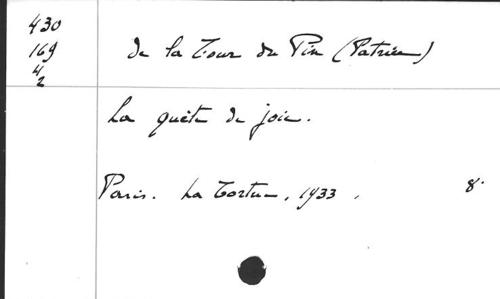 430
169
4/2
de la Tour du Pin (Patrice)
La quête de joie.
Paris. La Tortue, 1933, 8°